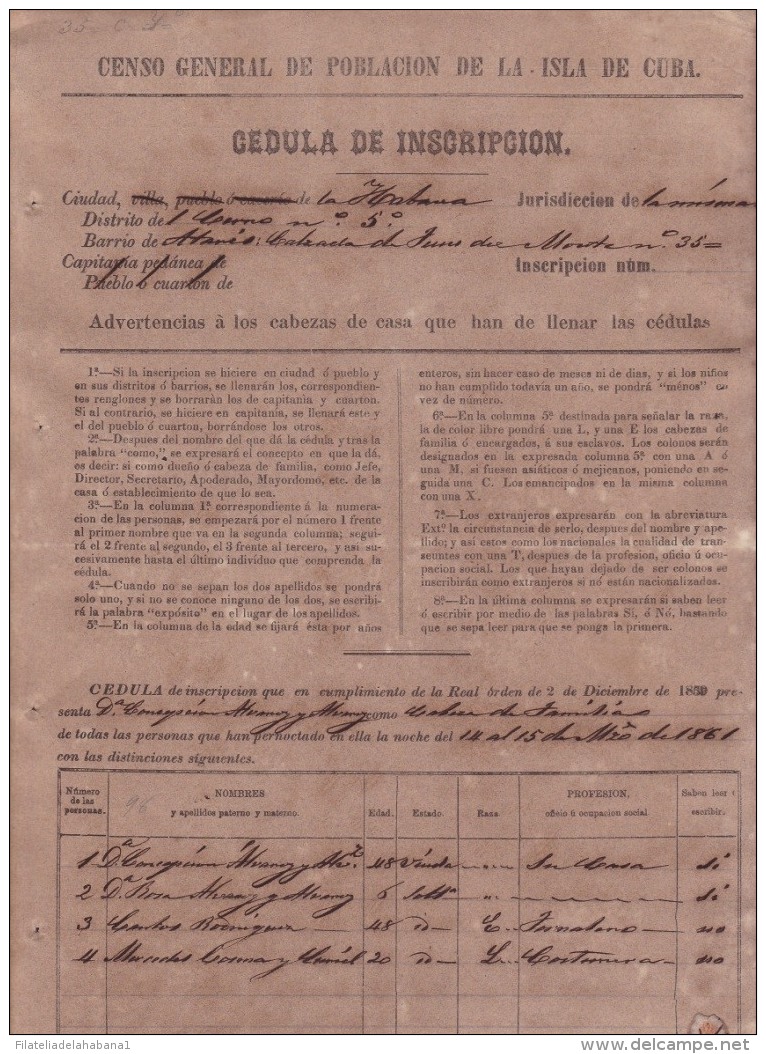 CENSO GENERAL DE POBLACION DE LA ISLA DE CUBA.
CEDULA DE INSCRIPCION.
Ciudad, villa, pueblo ó caserío de la Habana Jurisdiccion de la misma
Distrito del Cerro nº. 5º.
Barrio de Atarés: Calzada de Jesus del Monte nº. 35=
Capitanía pedánea de Inscripcion núm.
Pueblo ó cuarton de
Advertencias à los cabezas de casa que han de llenar las cédulas
1ª—Si la inscripcion se hiciere en ciudad ó pueblo y
en sus distritos ó barrios, se llenarán los, correspondien-
tes renglones y se borrarán los de capitania y cuarton.
Si al contrario, se hiciere en capitanía, se llenará este y
el del pueblo ó cuarton, borrándose los otros.
2ª—Despues del nombre del que dá la cédula y tras la
palabra “como,” se expresará el concepto en que la dá,
es decir: si como dueño ó cabeza de familia, como Jefe,
Director, Secretario, Apoderado, Mayordomo, etc. de la
casa ó establecimiento de que lo sea.
3ª—En la columna 1ª correspondiente á la numera-
cion de las personas, se empezará por el número 1 frente
al primer nombre que va en la segunda columna; segui-
rá el 2 frente al segundo, el 3 frente al tercero, y asi su-
cesivamente hasta el último indivíduo que comprenda la
cédula.
4ª—Cuando no se sepan los dos apellidos se pondrá
solo uno, y si no se conoce ninguno de los dos, se escribi-
rá la palabra “expósito” en el lugar de los apellidos.
5ª—En la columna de la edad se fijará ésta por años
enteros, sin hacer caso de meses ni de dias, y si los niños
no han cumplido todavía un año, se pondrá “ménos” en
vez de número.
6ª—En la columna 5ª destinada para señalar la raza,
la de color libre pondrá una L, y una E los cabezas de
familia ó encargados, á sus esclavos. Los colonos serán
designados en la expresada columna 5ª con una A ó
una M, si fuesen asiáticos ó mejicanos, poniendo en se-
guida una C. Los emancipados en la misma columna
con una X.
7ª—Los extranjeros expresarán con la abreviatura
Extº la circunstancia de serlo, despues del nombre y ape-
llido; y asi estos como los nacionales la cualidad de tran-
seuntes con una T, despues de la profesion, oficio ú ocu-
pacion social. Los que hayan dejado de ser colonos se
inscribirán como extranjeros si nó están nacionalizados.
8ª—En la última columna se expresarán si saben leer
ó escribir por medio de las palabras Si, ó Nó, bastando
que se sepa leer para que se ponga la primera.
CEDULA de inscripcion que en cumplimiento de la Real órden de 2 de Diciembre de 1859 pre-
senta Dª. Concepcion Alvarez y Alvarez como Cabeza de Familias
de todas las personas que han pernoctado en ella la noche del 14 al 15 de Mzo de 1861
con las distinciones siguientes.
Número de las personas. NOMBRES y apellidos paterno y materno. Edad. Estado. Raza PROFESION, oficio ú ocupacion social Saben leer ó escribir.
1 Dª Concepcion Alvarez y Alvz. 48 Viuda " " Su Casa si
2 Dª. Rosa Alvarez y Alvarez 6 Soltª " si
3 Carlos Rodriguez 48 id E. no
4 Mercedes y 20 id L. Costurera no
Filateliadelahabana1
delcampe.net